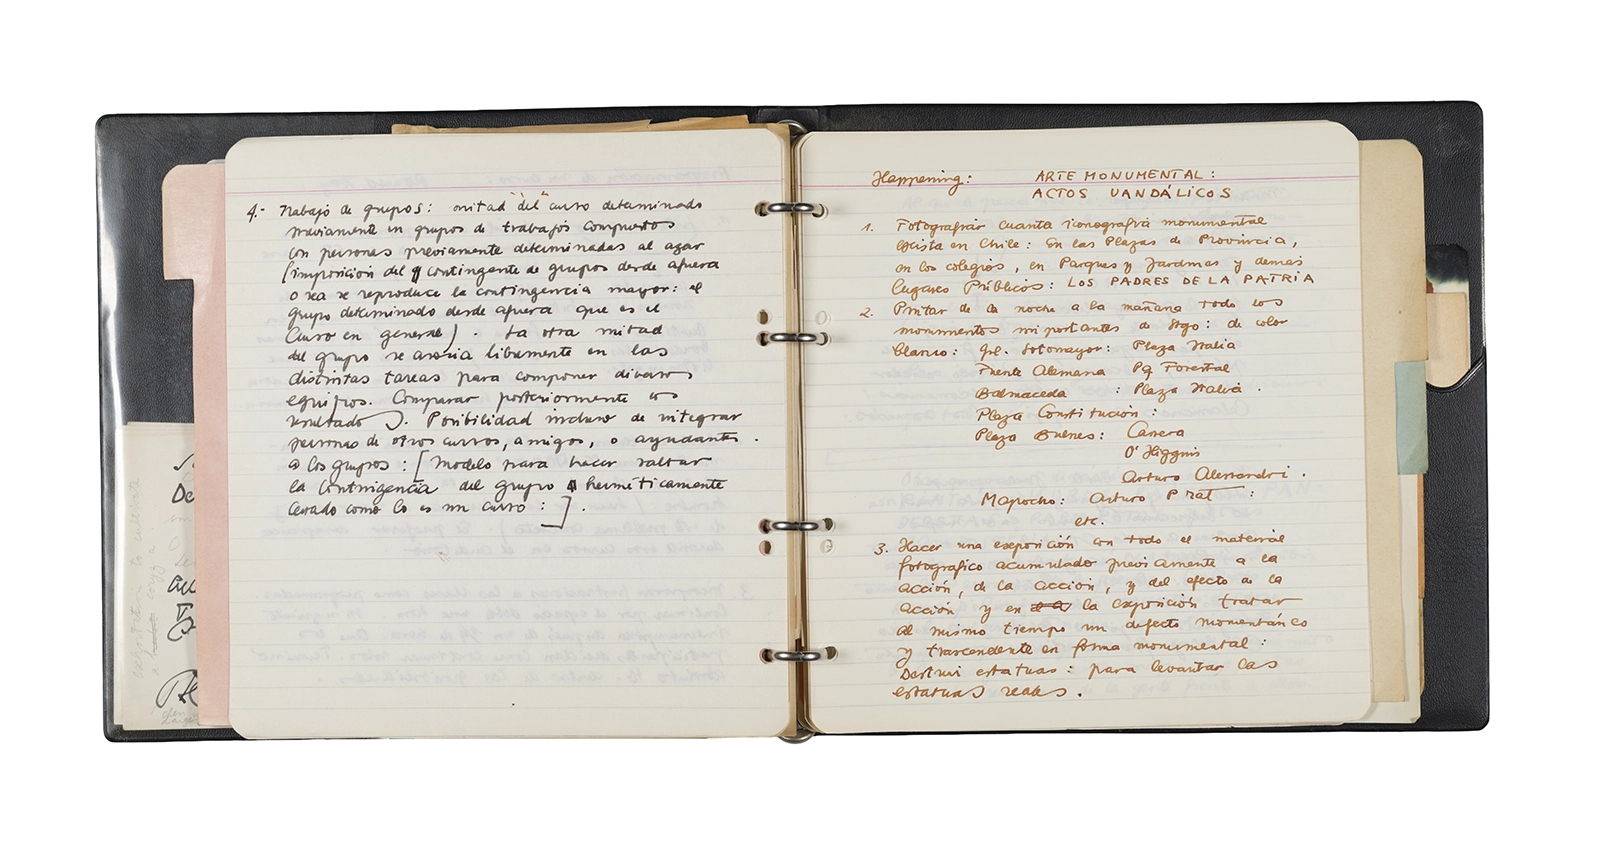 4.- Trabajo de grupos: mitad del curso determinado
previamente en grupos de trabajos compuestos
con personas previamente determinadas al azar
(imposición del contingente de grupos desde afuera
o sea se reproduce la contingencia mayor: el
grupo determinado desde afuera que es el
curso en general). La otra mitad
del grupo se asocia libremente en las
distintas tareas para componer diversos
equipos. Comparar posteriormente los
resultados. Posibilidad incluso de integrar
personas de otros cursos, amigos, o ayudantes.
a los grupos: [modelo para hacer saltar
la contingencia del grupo herméticamente
cerrado como lo es un curso:].
Happening: ARTE MONUMENTAL:
ACTOS VANDÁLICOS
1. Fotografiar cuanta iconografía monumental
exista en Chile: En las Plazas de Provincia,
en los colegios, en Parques y Jardines y demás
lugares Públicos: LOS PADRES DE LA PATRIA
2. Pintar de la noche a la mañana todo los
monumentos importantes de Stgo: de color
blanco: Gral. Sotomayor: Plaza Italia
Fuente Alemana Pq Forestal
Balmaceda : Plaza Italia.
Plaza Constitución:
Plaza Bulnes: Carrera
O'Higgins
Arturo Alessandri.
Mapocho: Arturo Prat:
etc.
3. Hacer una exposición con todo el material
fotográfico acumulado previamente a la
acción, de la acción, y del efecto de la
acción y en la exposición tratar
al mismo tiempo un defecto momentáneo
y trascendente en forma monumental:
Destruir estatuas: para levantar las
estatuas reales.